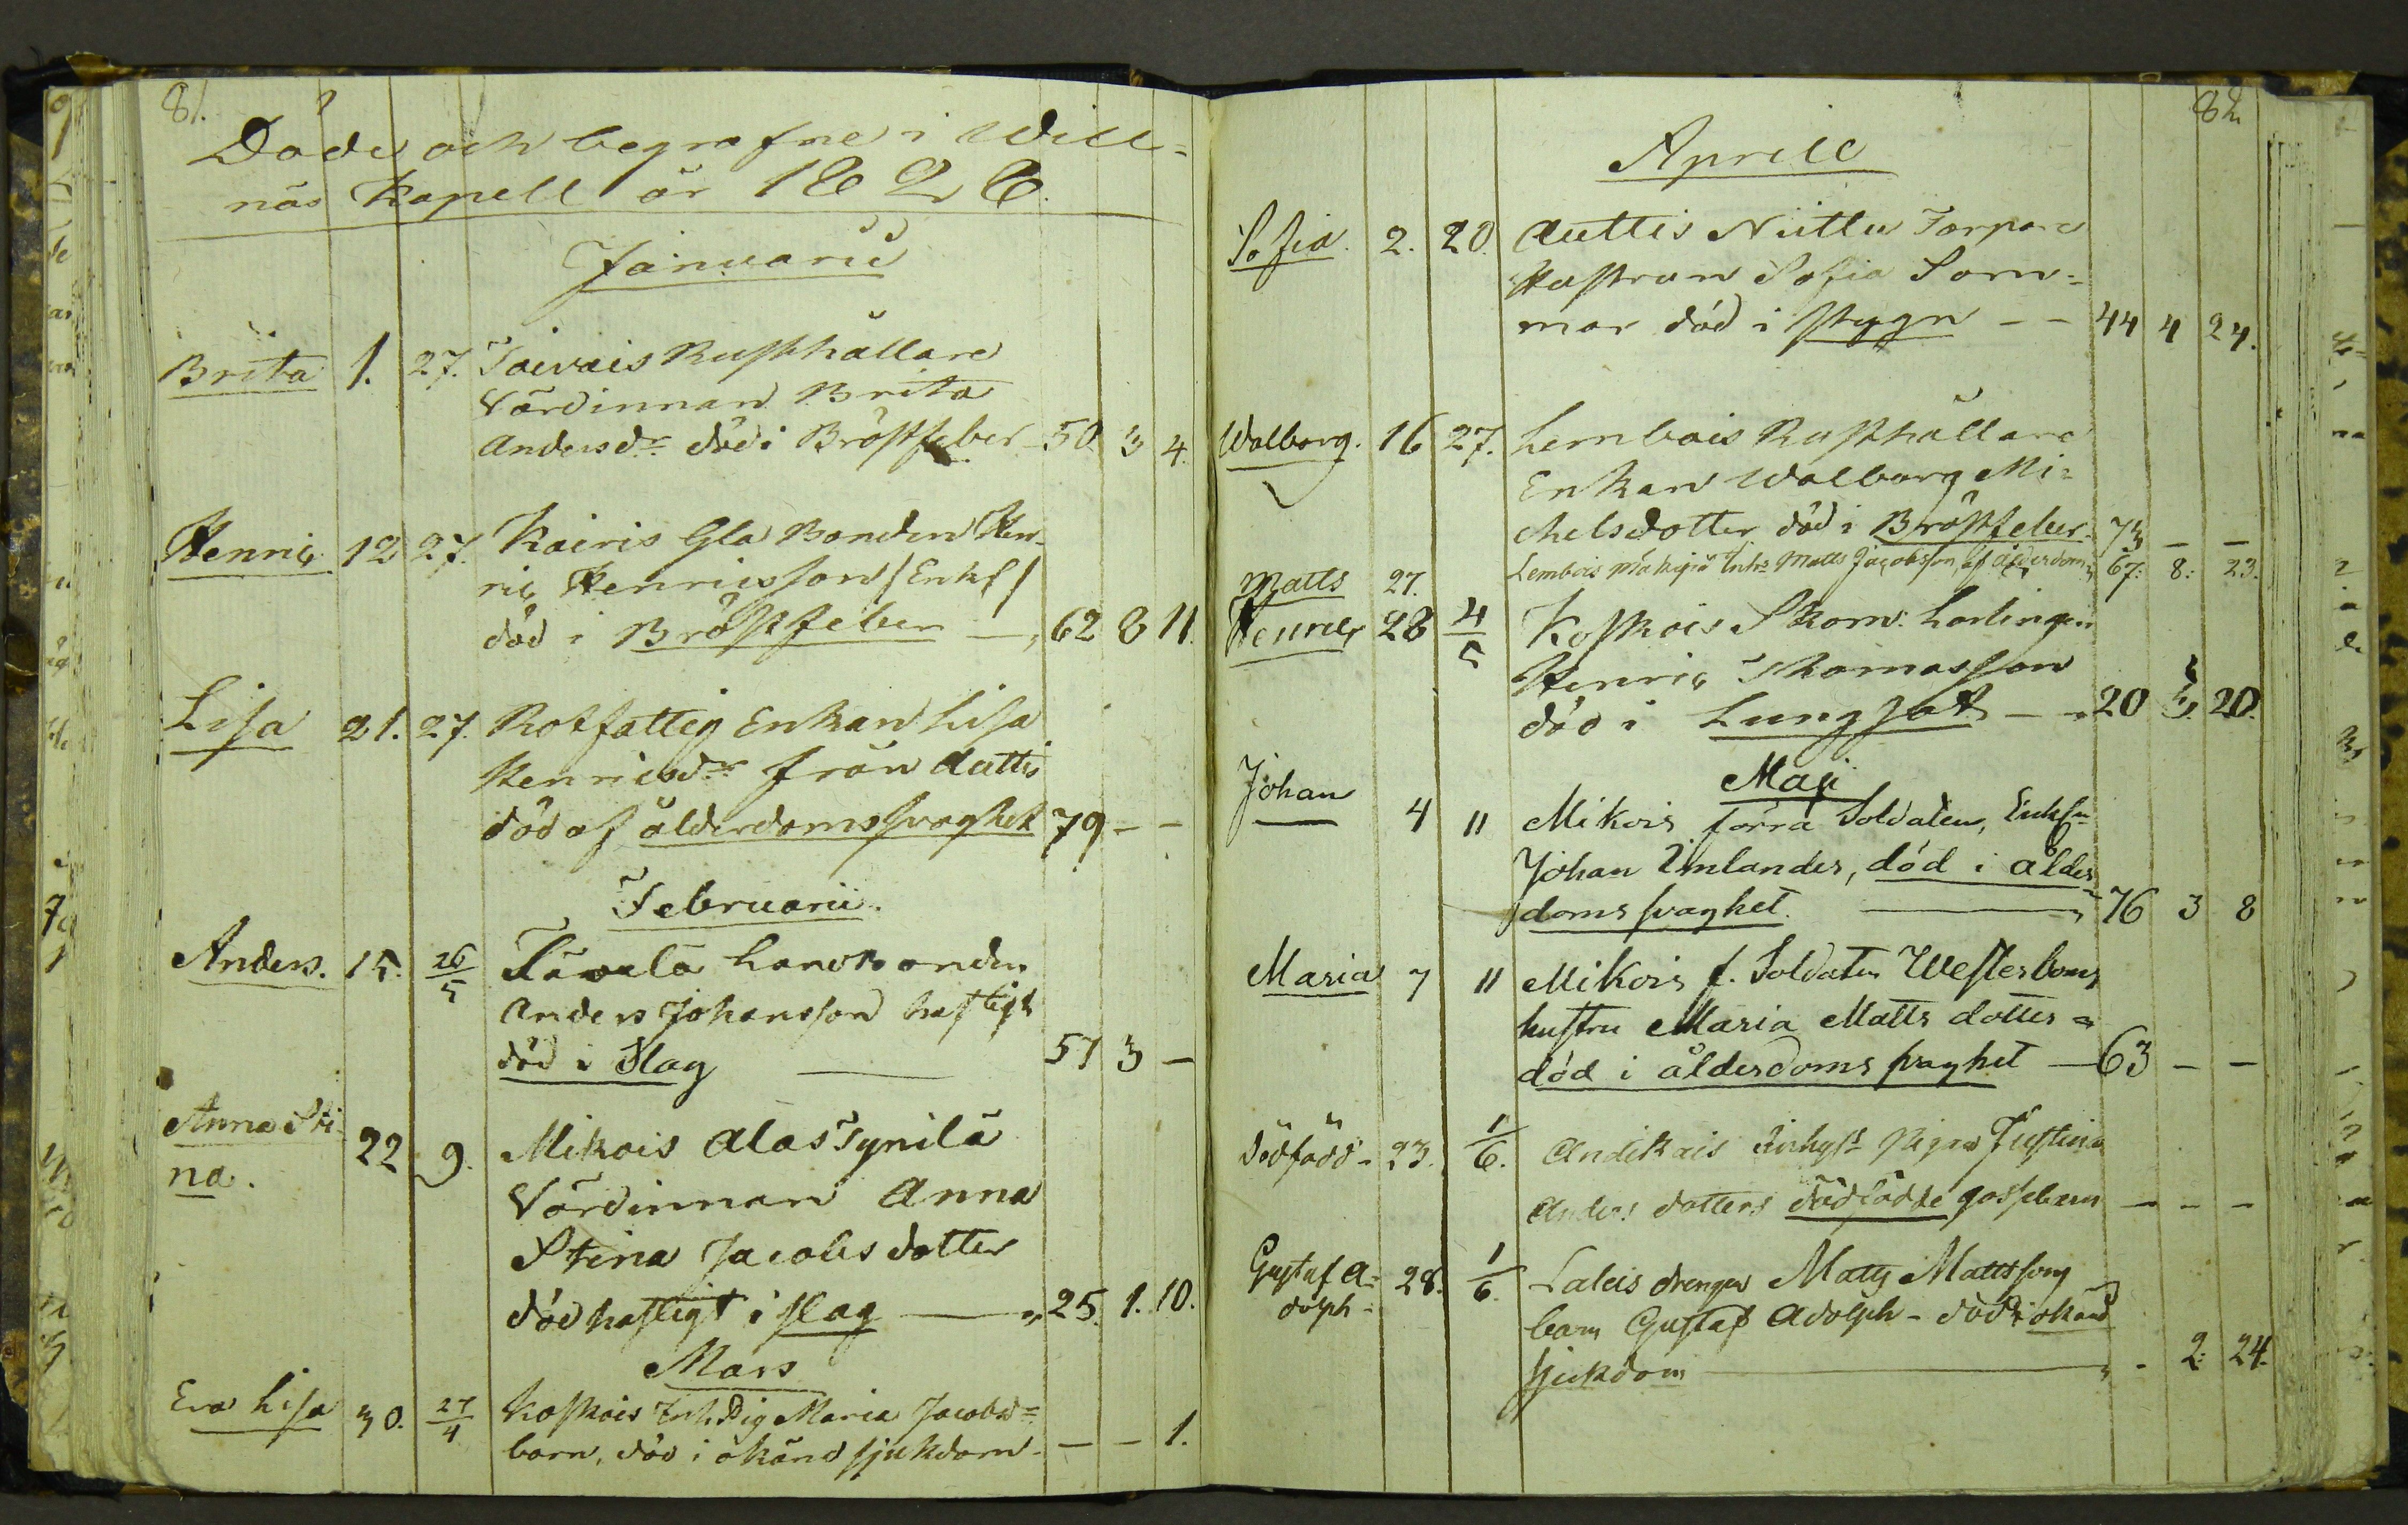 81.
Döde och begrafne i Will-
näs Kapell år 1828.
Januarii
Brita 1. 27. Toivais Rusthållare
Värdinnan Brita
Andersdr död i Bröstfeber 50 3 4.
Henric 12 27. Kairis Gla Bonden Hen-
ric Henricsson /Enkl/
död i Bröstfeber — 62 8 11.
Lisa 21. 27. Rotfattig Enkan Lisa
Henricsdr från Auttis
död af ålderdomssvaghet 79 - -
Februarii.
Anders. 15. 26/5 landbonden
Anders Johansson hastigt
död i Slag — 57 3 -
Anna Sti-
na. 22 9. Mikois Alas Tynilä
Värdinnan Anna
Stina Jacobsdotter
död hastigt i slag — 25. 1. 10.
Mars
Eva Lisa 30. 27/4 Koskois Inh. Pig Maria Jacobsdr
barn, död i okänd sjukdom - - - 1.
82
Aprill
Sofia. 2. 20. Auttis Niittu Torpare
Hustrun Sofia Som-
mar död i stygn - - 44 4 24.
Walborg. 16 27. Lembois Rusthållare
Enkan Walborg Mi-
chelsdotter död i Bröstfeber 73 - -
Matts 27. Lembois Inhs Matts Jacobsson, af ålderdom 67: 8: 23.
Henric 28 4/5 Koskois Skom: Lärlingen
Henric Thomasson
död i Lungsot - - 20 5. 20.
Maji
Johan 4 11 Mikois förra Soldaten, Enkln
Johan Umlander, död i ålder-
domssvaghet. — 76 3 8
Maria 7 11 Mikois f. Soldaten Westerboms
hustru Maria Matts dotter
död i ålderdoms svaghet — 63 - -
Dödfödd - 23. 1/6. Andikais Inhyst Pigan Justina
Anders dotters dödfödde gossebarn - - -
Gustaf A-
dolph - 28. 1/6. Laleis drengen Matts Mattssons
barn Gustaf Adolph - död i okänd
sjukdom — - 2: 24.